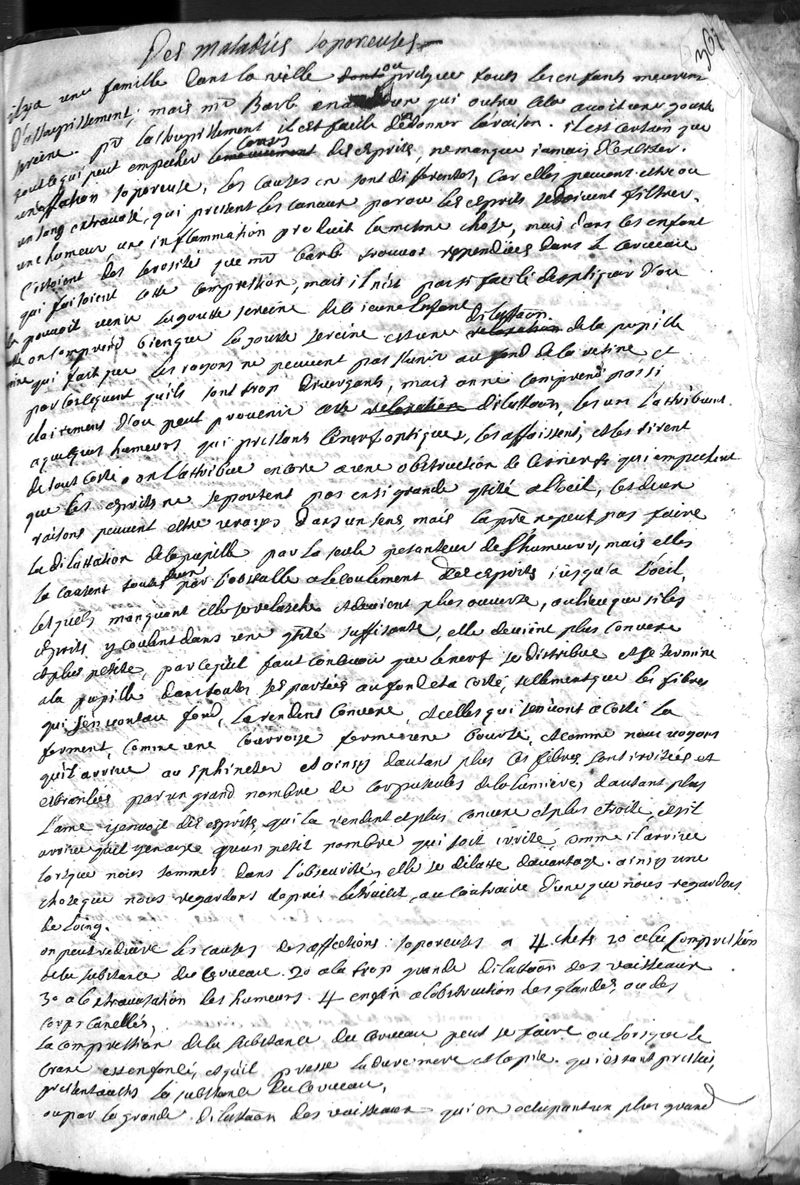 Des maladies soporeuses
367
il y a une famille dans la ville dont ou presque touts les enfants meurent
d'assoupissement, mais mr Barb en a un qui outre cela avoit une goutte
sereine. pr lassoupissement il est facile den donner la raison. il est certain que
tout ce qui peut empecher le cours des esprits, ne manque jamais d'exciter
une affection soporeuse, les causes en sont differentes, car elles peuvent etre ou
un sang extravasé, qui pressent les canaux par ou les esprits se doivent filtrer.
une humeur une inflammation produit la mesme chose, mais dans les enfant
c'estoient des serosités que mr barbe trouvoit rependües dans le cerveau
qui faisoient cette compression, mais il n'est pas si facile d'expliquer d'ou
pouvoit venir la goutte sereine de le jeune enfant
on comprend bien que la goutte sereine est une dilattaon de la pupille
qui fait que les rayons ne peuvent pas s'unir au fond de la retine et
par consequent quils sont trop divergants, mais on ne comprend pas si
clairement d'ou peut provenir cette dilattaon, les uns l'attribuent
a quelques humeurs qui pressans le nerf optique, les affaissent, et les tirent
de tout coste, on l'attribue encore a une obstruction qui empechent
que les esprits ne se portent pas en si grande qtité a l'oeil, ces deux
raisons peuvent estre vrayes dans un sens, mais la pre ne peut pas faire
la dilattation de la pupille par la seule pesanteur de l'humeur, mais elles
la causent toutes deux par l'obstacle a l'ecoulement des esprits jusqu'a l'oeil,
lesquels manquant elle se relasche et devient plus ouverte, au lieu que si les
esprits y coulent dans une qtité suffisante, elle devient plus convexe
et plus petite, parcequ'il faut concevoir que le nerf se distribue et se termine
a la pupille dans toutes ses parties au fond et a costé, tellement que les fibres
qui s'en vont au fond, la rendent convexe, et celles qui s'en vont a costé la
ferment, comme une courroye ferme une bourse, et comme nous voyons
qu'il arrive au sphincter et ainsy d'autant plus ces fibres sont irritées et
ebranlées par un grand nombre de corpuscules de la lumiere, d'autant plus
l'ame y envoit des esprits, qui la rendent et plus convexe et plus etroite, et s'il
arrive qu'il n'y en aye qu'un petit nombre qui soit irrité, comme il arrive
lorsque nous sommes dans l'obscurité, elle se dilatte davantage. ainsy une
chose que nous regardons de pres se retraicit, au contraire d'une que nous regardons
de loing.
on peut reduire les causes des affections soporeuses a 4 chefs 1o a la compression
de la substance du cerveau. 2o a la trop grande dilattaon des vaisseaux
3o a l'extravasation des humeurs. 4 enfin a l'obstruction des glandes, ou des
corps canellés.
la compression de la substance du cerveau peut se faire ou lorsque le
crane est enfoncé, et qu'il presse la dure mere et la pie. qui estant pressées,
pressent aussy la substance du cerveau,
ou par la grande dilattaon des vaisseaux qui en occupant un plus grand